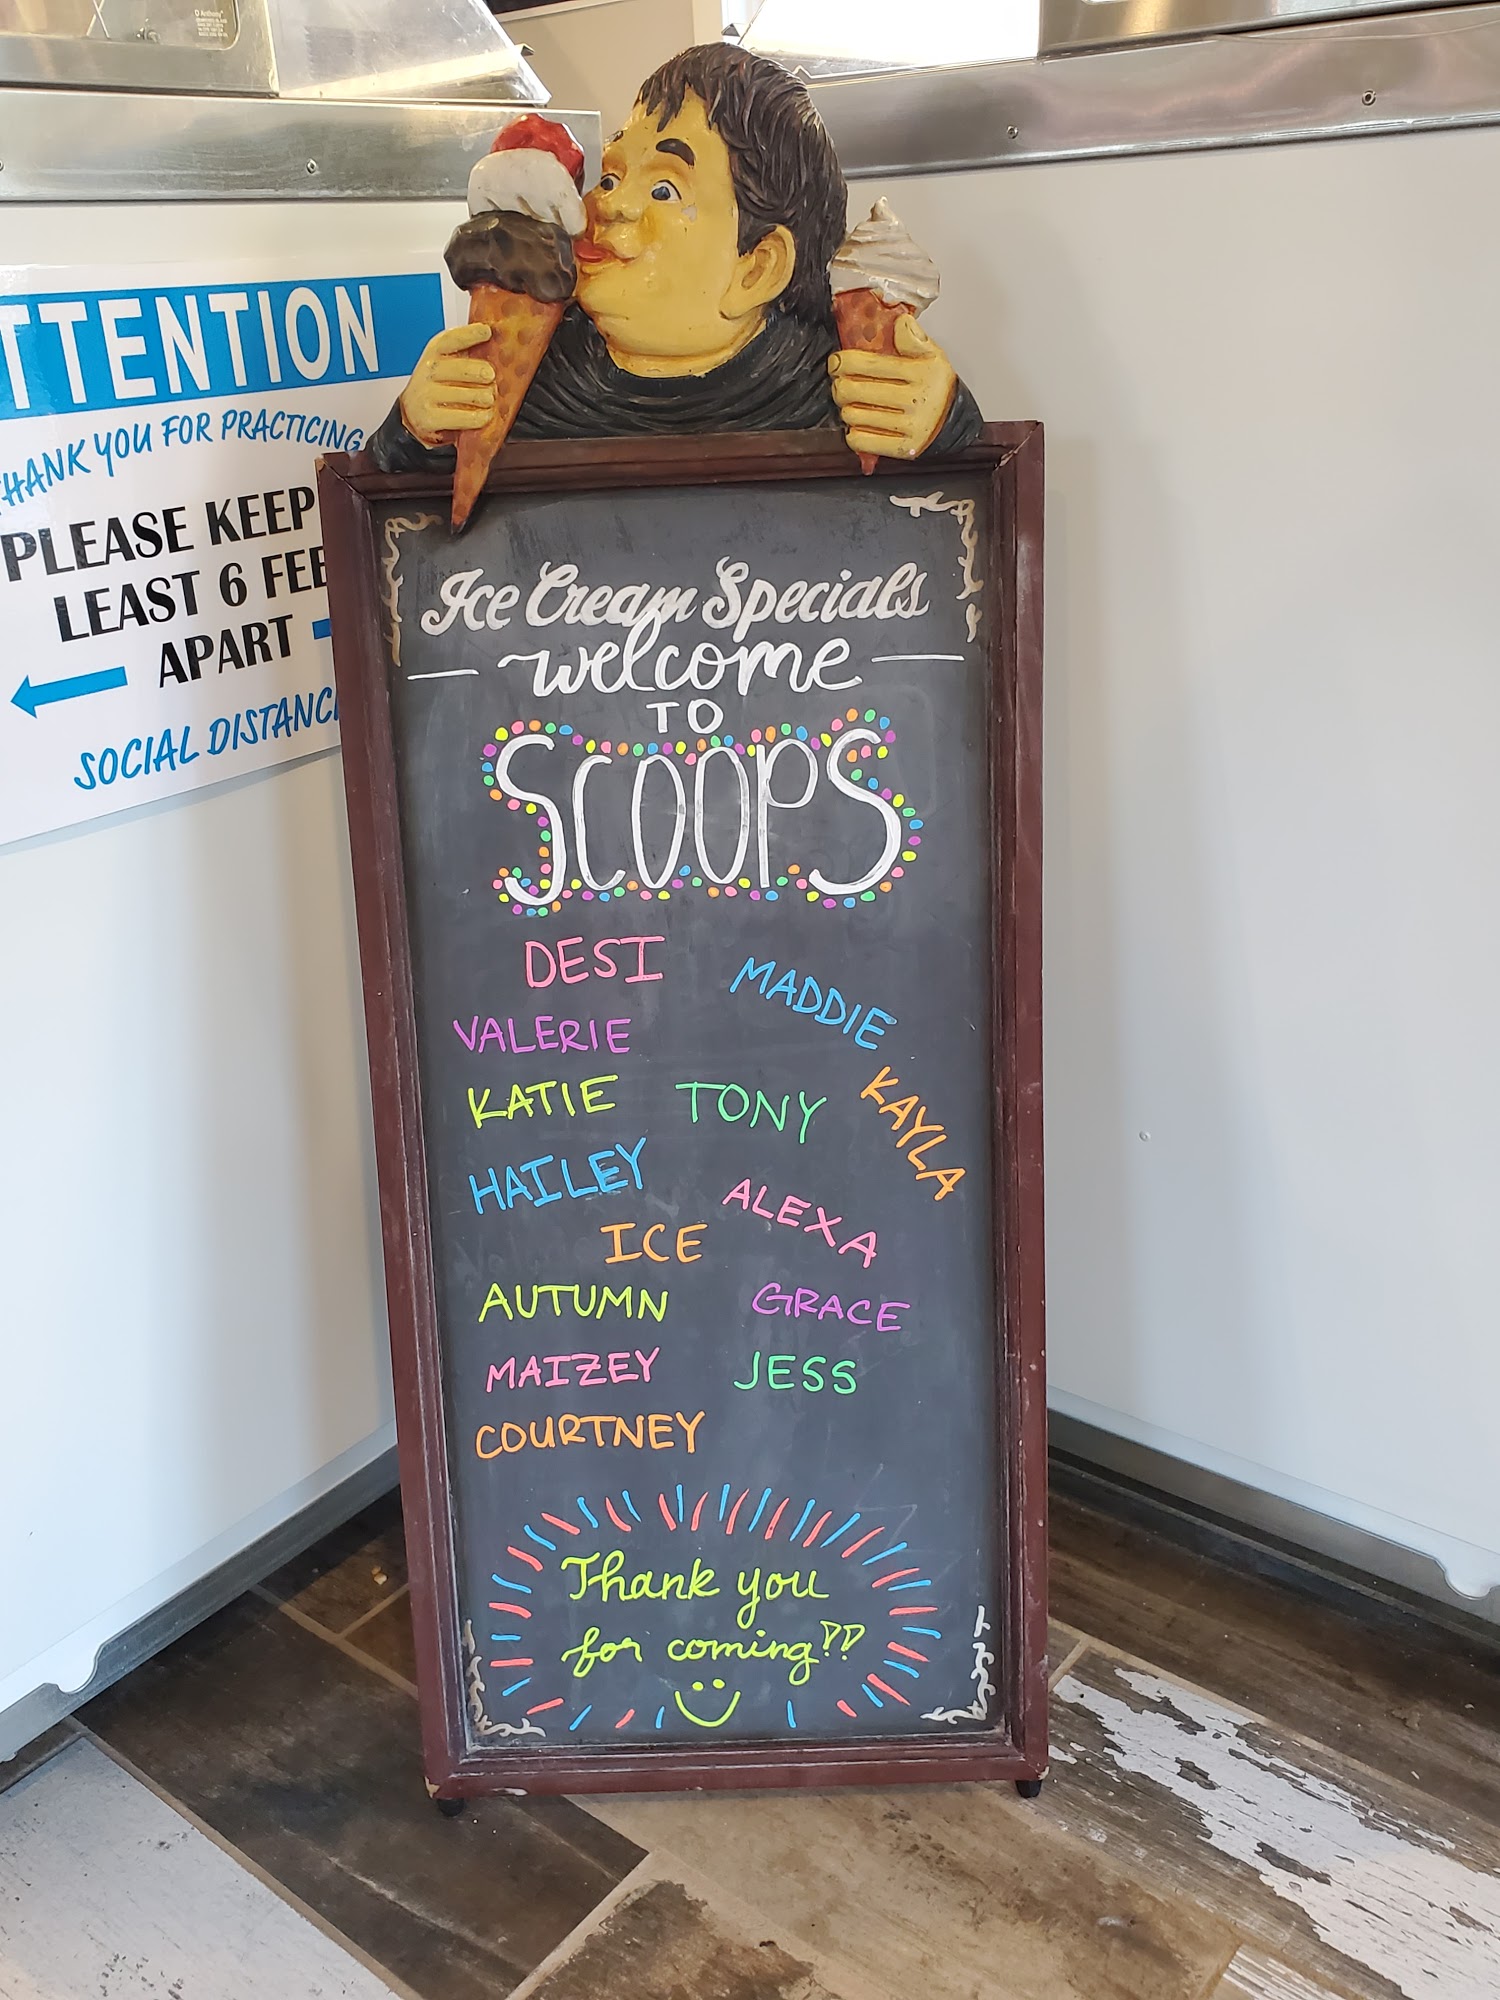 TTENTION
HANK YOU FOR PRACTICING
PLEASE KEEP
LEAST 6 FEE
APART
SOCIAL DISTANCI
Ice Cream Specials
welcome
TO
SCOOPS
DESI
MADDIE
VALERIE
KATIE
TONY
KAYLA
HAILEY
ALEXA
ICE
AUTUMN
GRACE
MAIZEY
JESS
COURTNEY
Thank you
for coming!!!